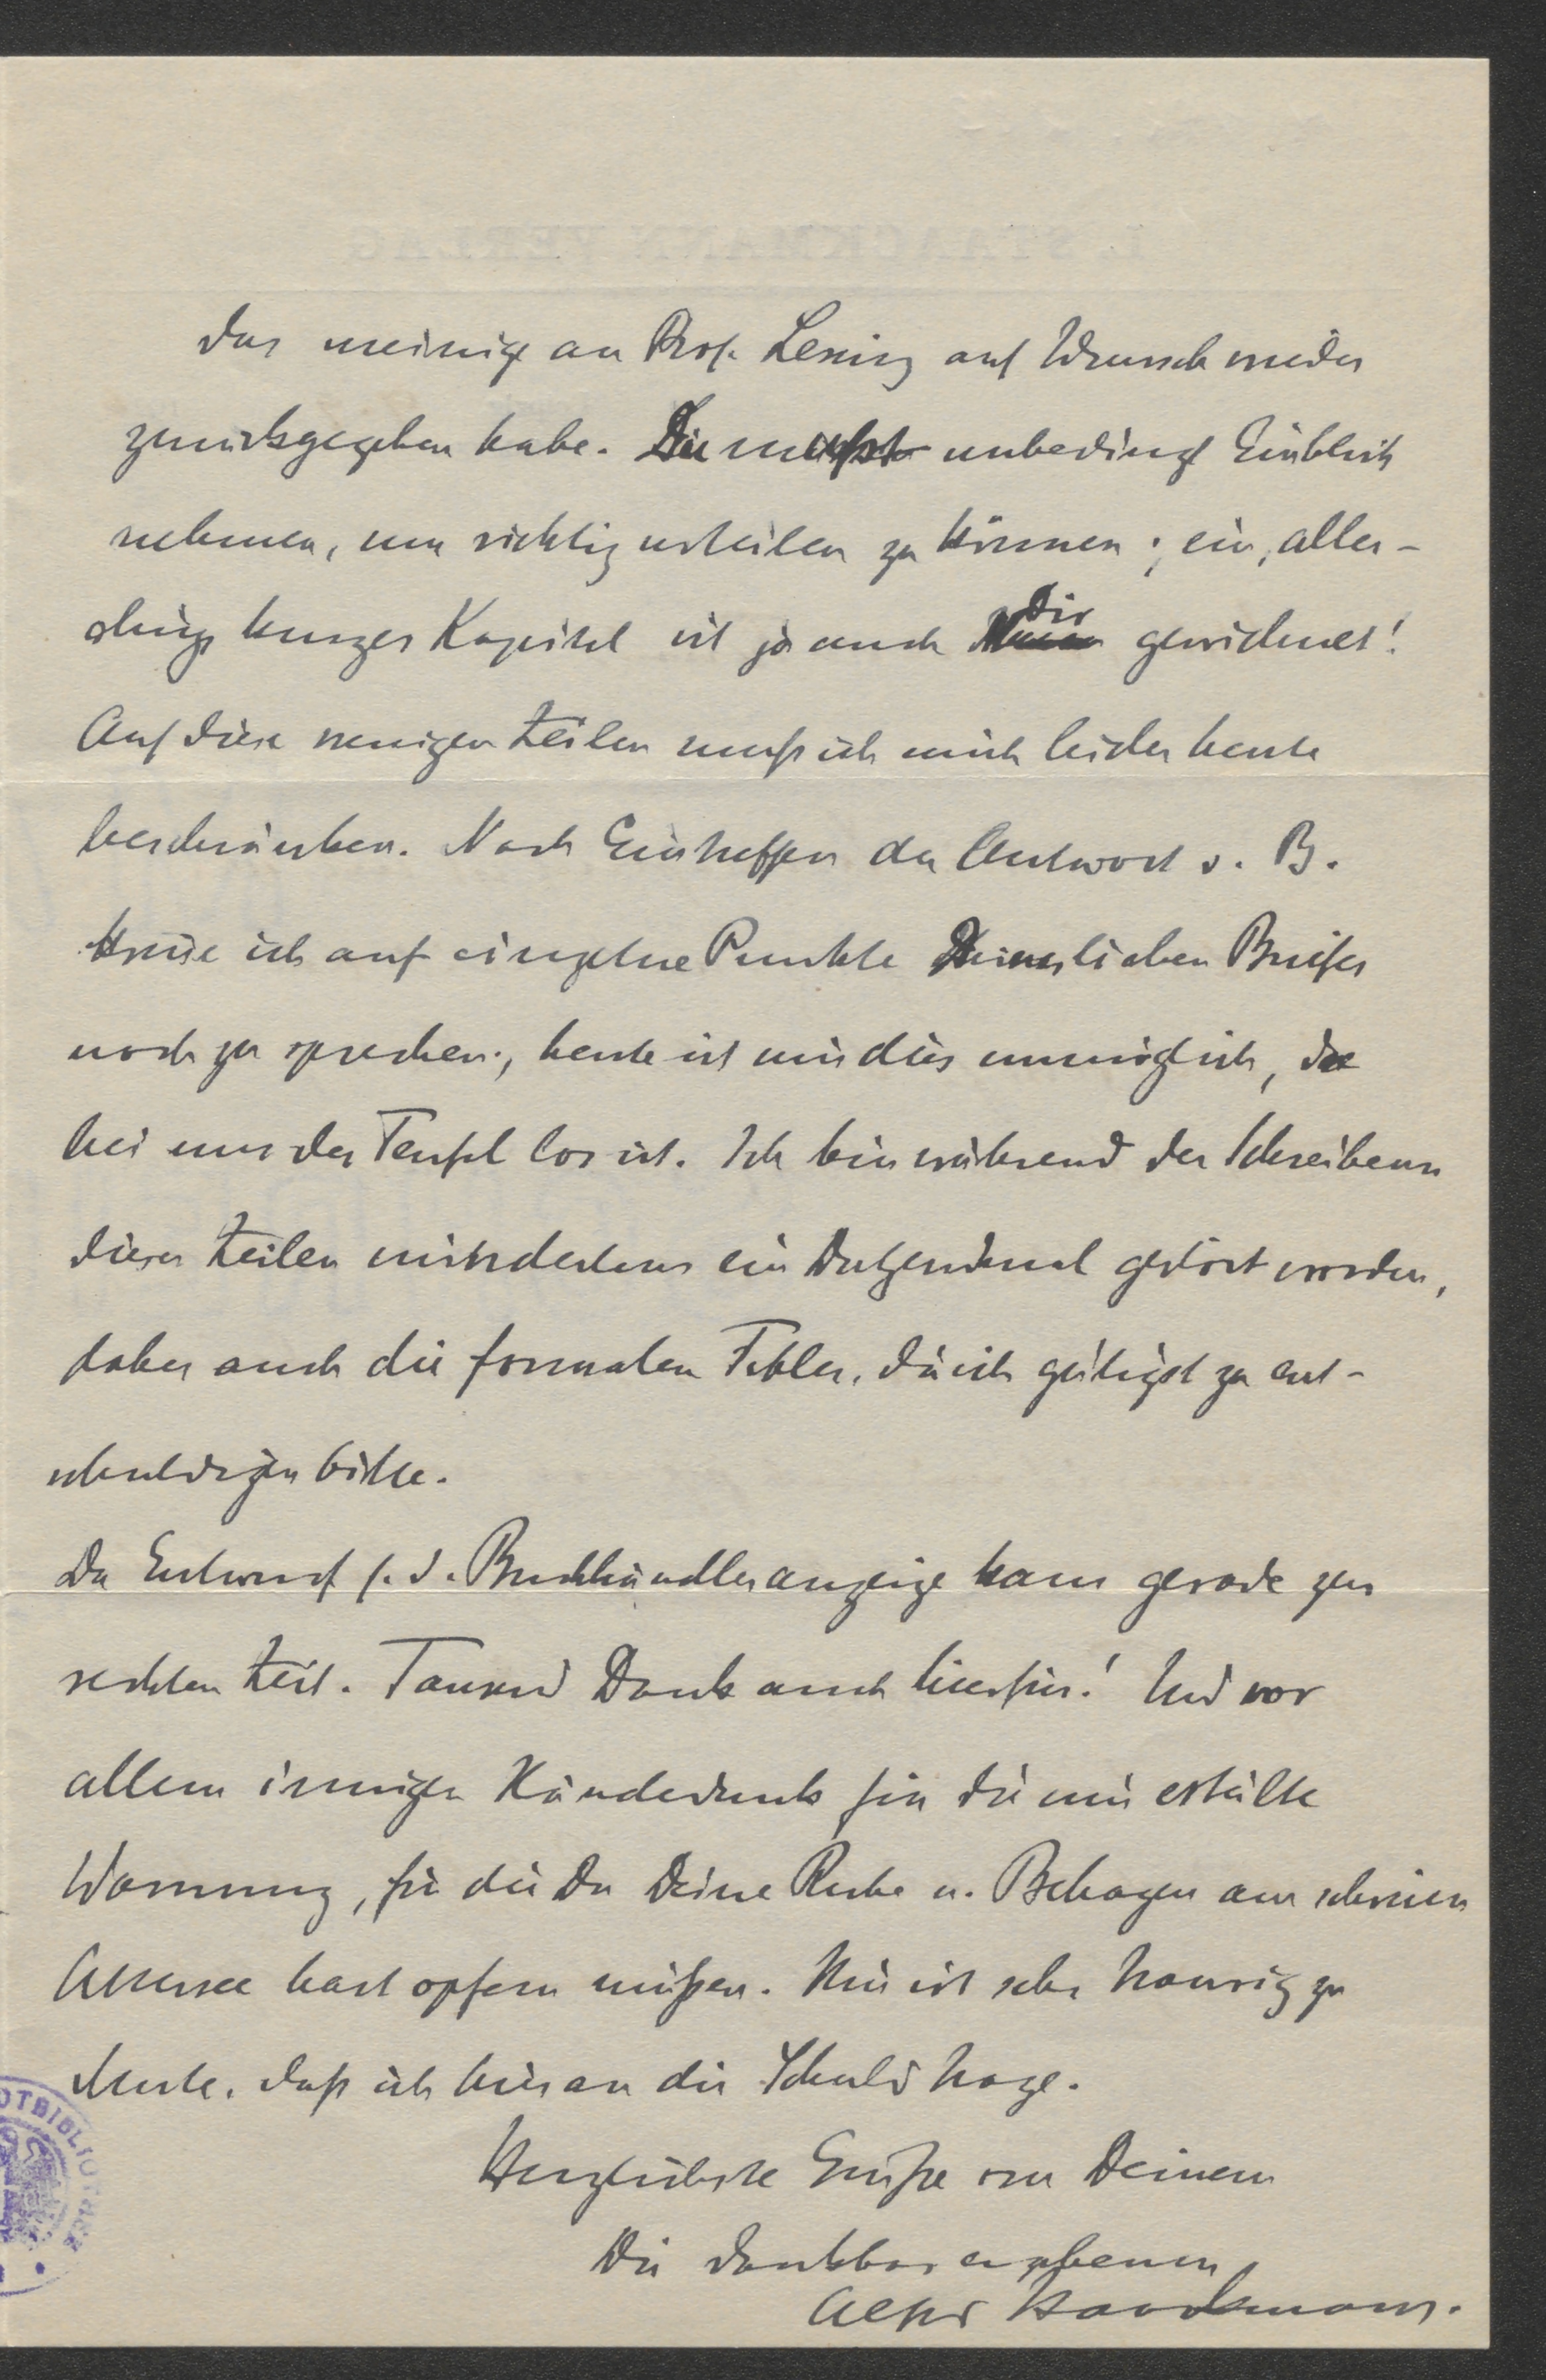 das meinige an Prof. Lessing auf Wunsch wieder
zurückgegeben habe. Du mußt unbedingt Einblick
nehmen, um richtig urteilen zu können; ein, aller-
dings kurzes Kapitel ist ja auch Dir gewidmet!
Auf diese wenigen Zeilen muß ich mich leider heute
beschränken. Nach Eintreffen der Antwort v. B.
komme ich auf einzelne Punkte Deines lieben Briefes
noch zu sprechen; heute ist mir dies unmöglich, da
bei uns der Teufel los ist. Ich bin während des Schreibens
dieser Zeilen mindestens ein Dutzendmal gestört worden,
daher auch die formalen Fehler, die ich gütigst zu ent-
schuldigen bitte.
Der Entwurf f. d. Buchhändleranzeige kam gerade zur
rechten Zeit. Tausend Dank auch hierfür! Und vor
allem innigen Händedruck für die mir erteilte
Warnung, für die Du Deine Ruhe u. Behagen am schönen
Attersee hast opfern müßen. Mir ist sehr traurig zu
Mute, daß ich hieran die Schuld trage.
Herzlichste Grüße von Deinem
Dir dankbar ergebenen
Alfred Staackmann.